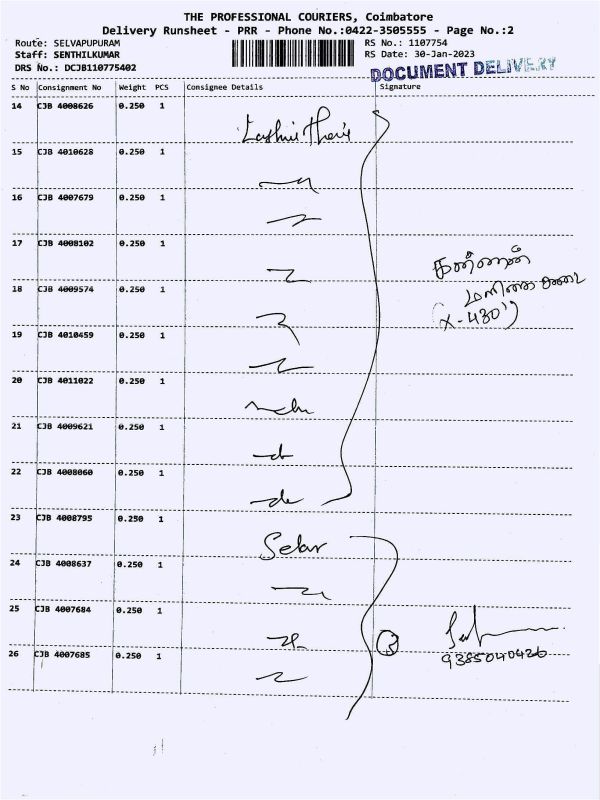 THE PROFESSIONAL COURIERS, Coimbatore
Delivery Runsheet - PRR - Phone No.:0422-3505555 - Page No.:2
Route: SELVAPUPURAM RS No.: 1107754
Staff: SENTHILKUMAR RS Date: 30-Jan-2023
DRS No.: DCJB110775402 DOCUMENT DELIVERY
S No Consignment No Weight PCS Consignee Details Signature
14 CJB 4008626 0.250 1
15 CJB 4010628 0.250 1
16 CJB 4007679 0.250 1
17 CJB 4008102 0.250 1
கண்ணன்
18 CJB 4009574 0.250 1
மளிகை கடை
(X-430')
19 CJB 4010459 0.250 1
20 CJB 4011022 0.250 1
21 CJB 4009621 0.250 1
22 CJB 4008060 0.250 1
23 CJB 4008795 0.250 1
24 CJB 4008637 0.250 1
25 CJB 4007684 0.250 1
3
9385040426
26 CJB 4007685 0.250 1